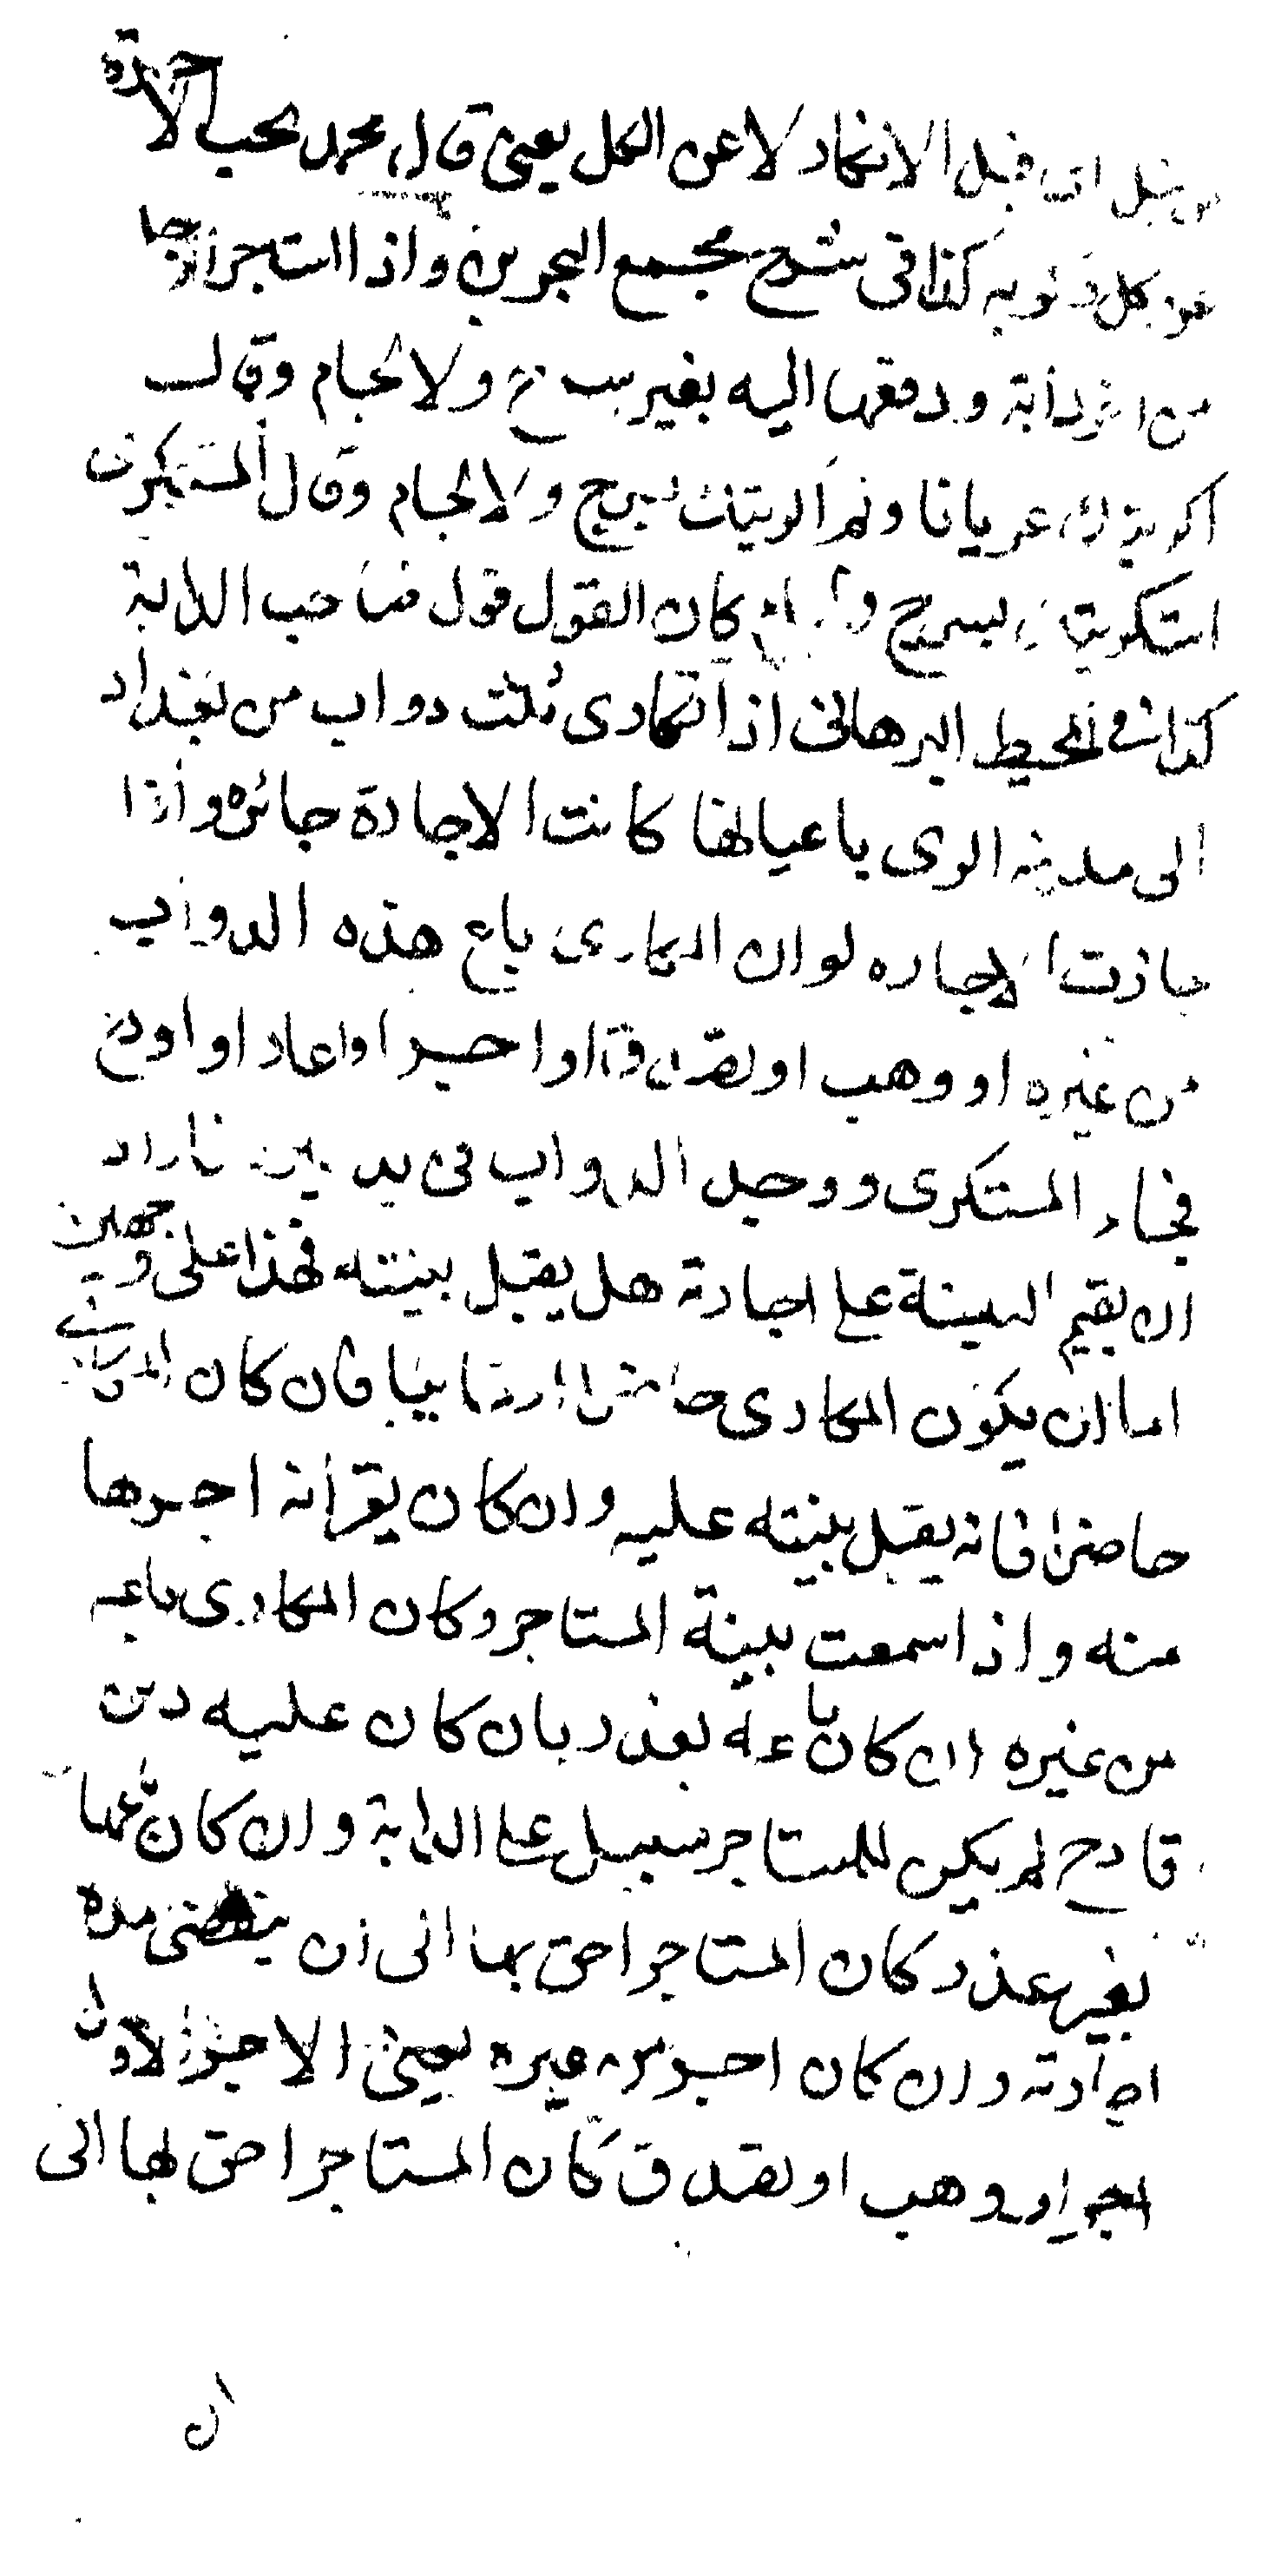 قبل اى قبل الانكار لا عن الكل يعنى قال محمد يجب الاجرة
عن كل ركوبه كذا فى شرح مجمع البحرين واذا استاجر رجلا
من اخر دابة ودفعها اليه بغير سرج ولا لجام وقال
اكريتك عريانا ولم اكريتك بسرج ولا لجام وقال المستكرى
استكريتها بسرج ولجام كان القول قول صاحب الدابة
كذا فى المحيط البرهانى اذا تكارى ثلث دواب من بغداد
الى مدينه الرى باعيانها كانت الاجارة جائزه واذا
جازت الاجاره لو ان المكارى باع هذه الدواب
من غيره او وهب او تصدق او اجر او اعار او اودع
فجاء المستكرى ووجد الدواب فى يد غيره فاراد
ان يقيم البينة على اجارته هل يقبل بينته فهذا على وجهين
اما ان يكون المكارى حاضرا او غائبا فان كان المكارى
حاضرا فانه يقبل بينته عليه وان كان يقر انه اجرها
منه واذا سمعت بينة المستاجر وكان المكارى باعه
من غيره ان كان باعه بعذر بان كان عليه دين
قادح لم يكن للمستاجر سبيل على الدابة وان كان باعها
بغير عذر كان المستاجر احق بها الى ان ينقضى مدة
اجارته وان كان اجر من غيره يعنى الاجر الاول
اجر او وهب او تصدق كان المستاجر احق بها الى
ان